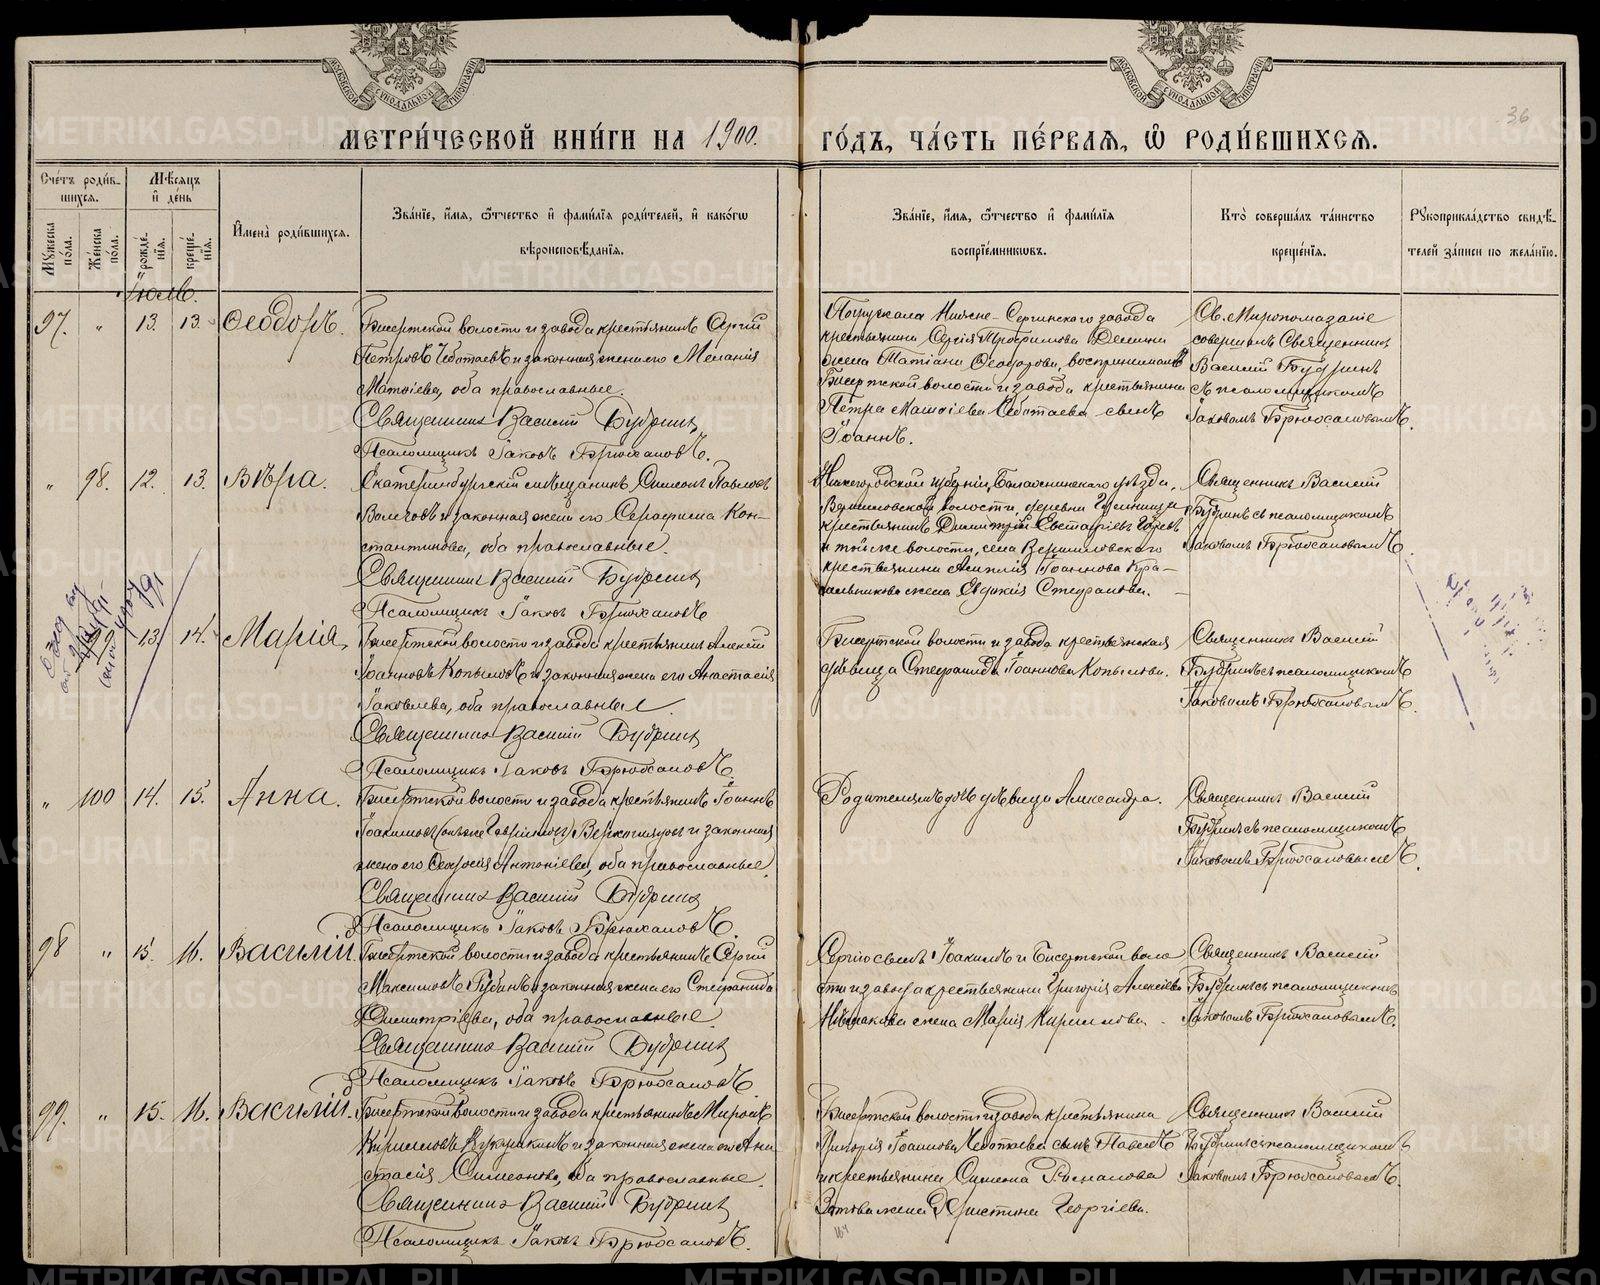 МЕТРИ́ЧЕСКОЙ КНИ́ГИ НА 1900.
ГО́ДЪ, ЧА́СТЬ ПЕ́РВАѦ, Ѽ РОДИ́ВШИХСѦ.
36
Сче́тъ роди́вшихсѧ.
Мѣ́сѧцъ и҆ де́нь
Мꙋ́жеска по́ла.
Же́нска по́ла.
рожде́нїѧ.
креще́нїѧ.
И҆мена̀ роди́вшихсѧ.
Зва́нїе, и҆́мѧ, ѻ҆́тчество и҆ фами́лїѧ роди́телей, и҆ како́гѡ
вѣроисповѣ́данїѧ.
Зва́нїе, и҆́мѧ, ѻ҆́тчество и҆ фами́лїѧ
воспрїе́мникѡвъ.
Кто̀ соверша́лъ та́инство
креще́нїѧ.
Рꙋкоприкла́дство свидѣ́телей за́писи по жела́нїю.
Іюль.
97. " 13. 13. Ѳеодоръ.
Бисертской волости и завода крестьянинъ Сергій
Петровъ Чебатаевъ и законная жена его Меланія
Матѳіева, оба православные.
Священникъ Василій Бубринъ
Псаломщикъ Іаковъ Брюхановъ.
Погружала Нижне-Сергинского завода
крестьянина Сергія
жена Татіана Ѳеодорова, воспріемникъ
Бисертской волости и завода крестьянина
Петра Матѳіева Чебатаева сынъ
Іоаннъ.
Св. Мѵропомазаніе
совершилъ Священникъ
Василій Бубринъ
съ псаломщикомъ
Іаковомъ Брюхановымъ.
" 98. 12. 13. Вѣра.
Екатеринбургскій мѣщанинъ Симеонъ Павловъ
Волковъ и законная жена его Серафима Кон-
стантинова, оба православные.
Священникъ Василій Бубринъ
Псаломщикъ Іаковъ Брюхановъ
Нижегородской губерніи, Балахнинскаго уѣзда,
волости, деревни
крестьянинъ Димитрій Евстафіевъ
и тойже волости, села
крестьянина Іоаннова Кра-
сильникова жена Евдокія Стефанова.
Священникъ Василій
Бубринъ съ псаломщикомъ
Іаковомъ Брюхановымъ.
13. 14. Марія.
Бисертской волости и завода крестьянинъ Алексій
Іоанновъ Копыловъ и законная жена его Анастасія
Іаковлева, оба православные.
Священникъ Василій Бубринъ
Псаломщикъ Іаковъ Брюхановъ.
Бисертской волости и завода крестьянская
дѣвица Стефанида Іоаннова Копылова.
Священникъ Василій
Бубринъ съ псаломщикомъ
Іаковомъ Брюхановымъ.
" 100 14. 15. Анна.
Бисертской волости и завода крестьянинъ Іоаннъ
Іоакимовъ и законная
жена его Антоніева, оба православные.
Священникъ Василій Бубринъ
Псаломщикъ Іаковъ Брюхановъ.
Родителямъ дочь дѣвица Александра.
Священникъ Василій
Бубринъ съ псаломщикомъ
Іаковомъ Брюхановымъ.
98 " 15. 16. Василій.
Бисертской волости и завода крестьянинъ Сергій
Максимовъ Рубанъ и законная жена его Стефанида
Димитріева, оба православные.
Священникъ Василій Бубринъ
Псаломщикъ Іаковъ Брюхановъ.
сынъ Іоакимъ и Бисертской воло
сти и завода крестьянина Григорія Алексіева
жена Марія Кириллова.
Священникъ Василій
Бубринъ съ псаломщикомъ
Іаковомъ Брюхановымъ.
99. " 15. 16. Василій.
Бисертской волости и завода крестьянинъ Миронъ
Кирилловъ и законная жена его Ана
стасія Симеонова, оба православные.
Священникъ Василій Бубринъ
Псаломщикъ Іаковъ Брюхановъ.
Бисертской волости и завода крестьянина
Григорія Іоаннова Чебатаева сынъ Павелъ
и крестьянина Симеона
жена Христина Георгіева.
Священникъ Василій
Бубринъ съ псаломщикомъ
Іаковомъ Брюхановымъ.
METRIKI.GASO-URAL.RU